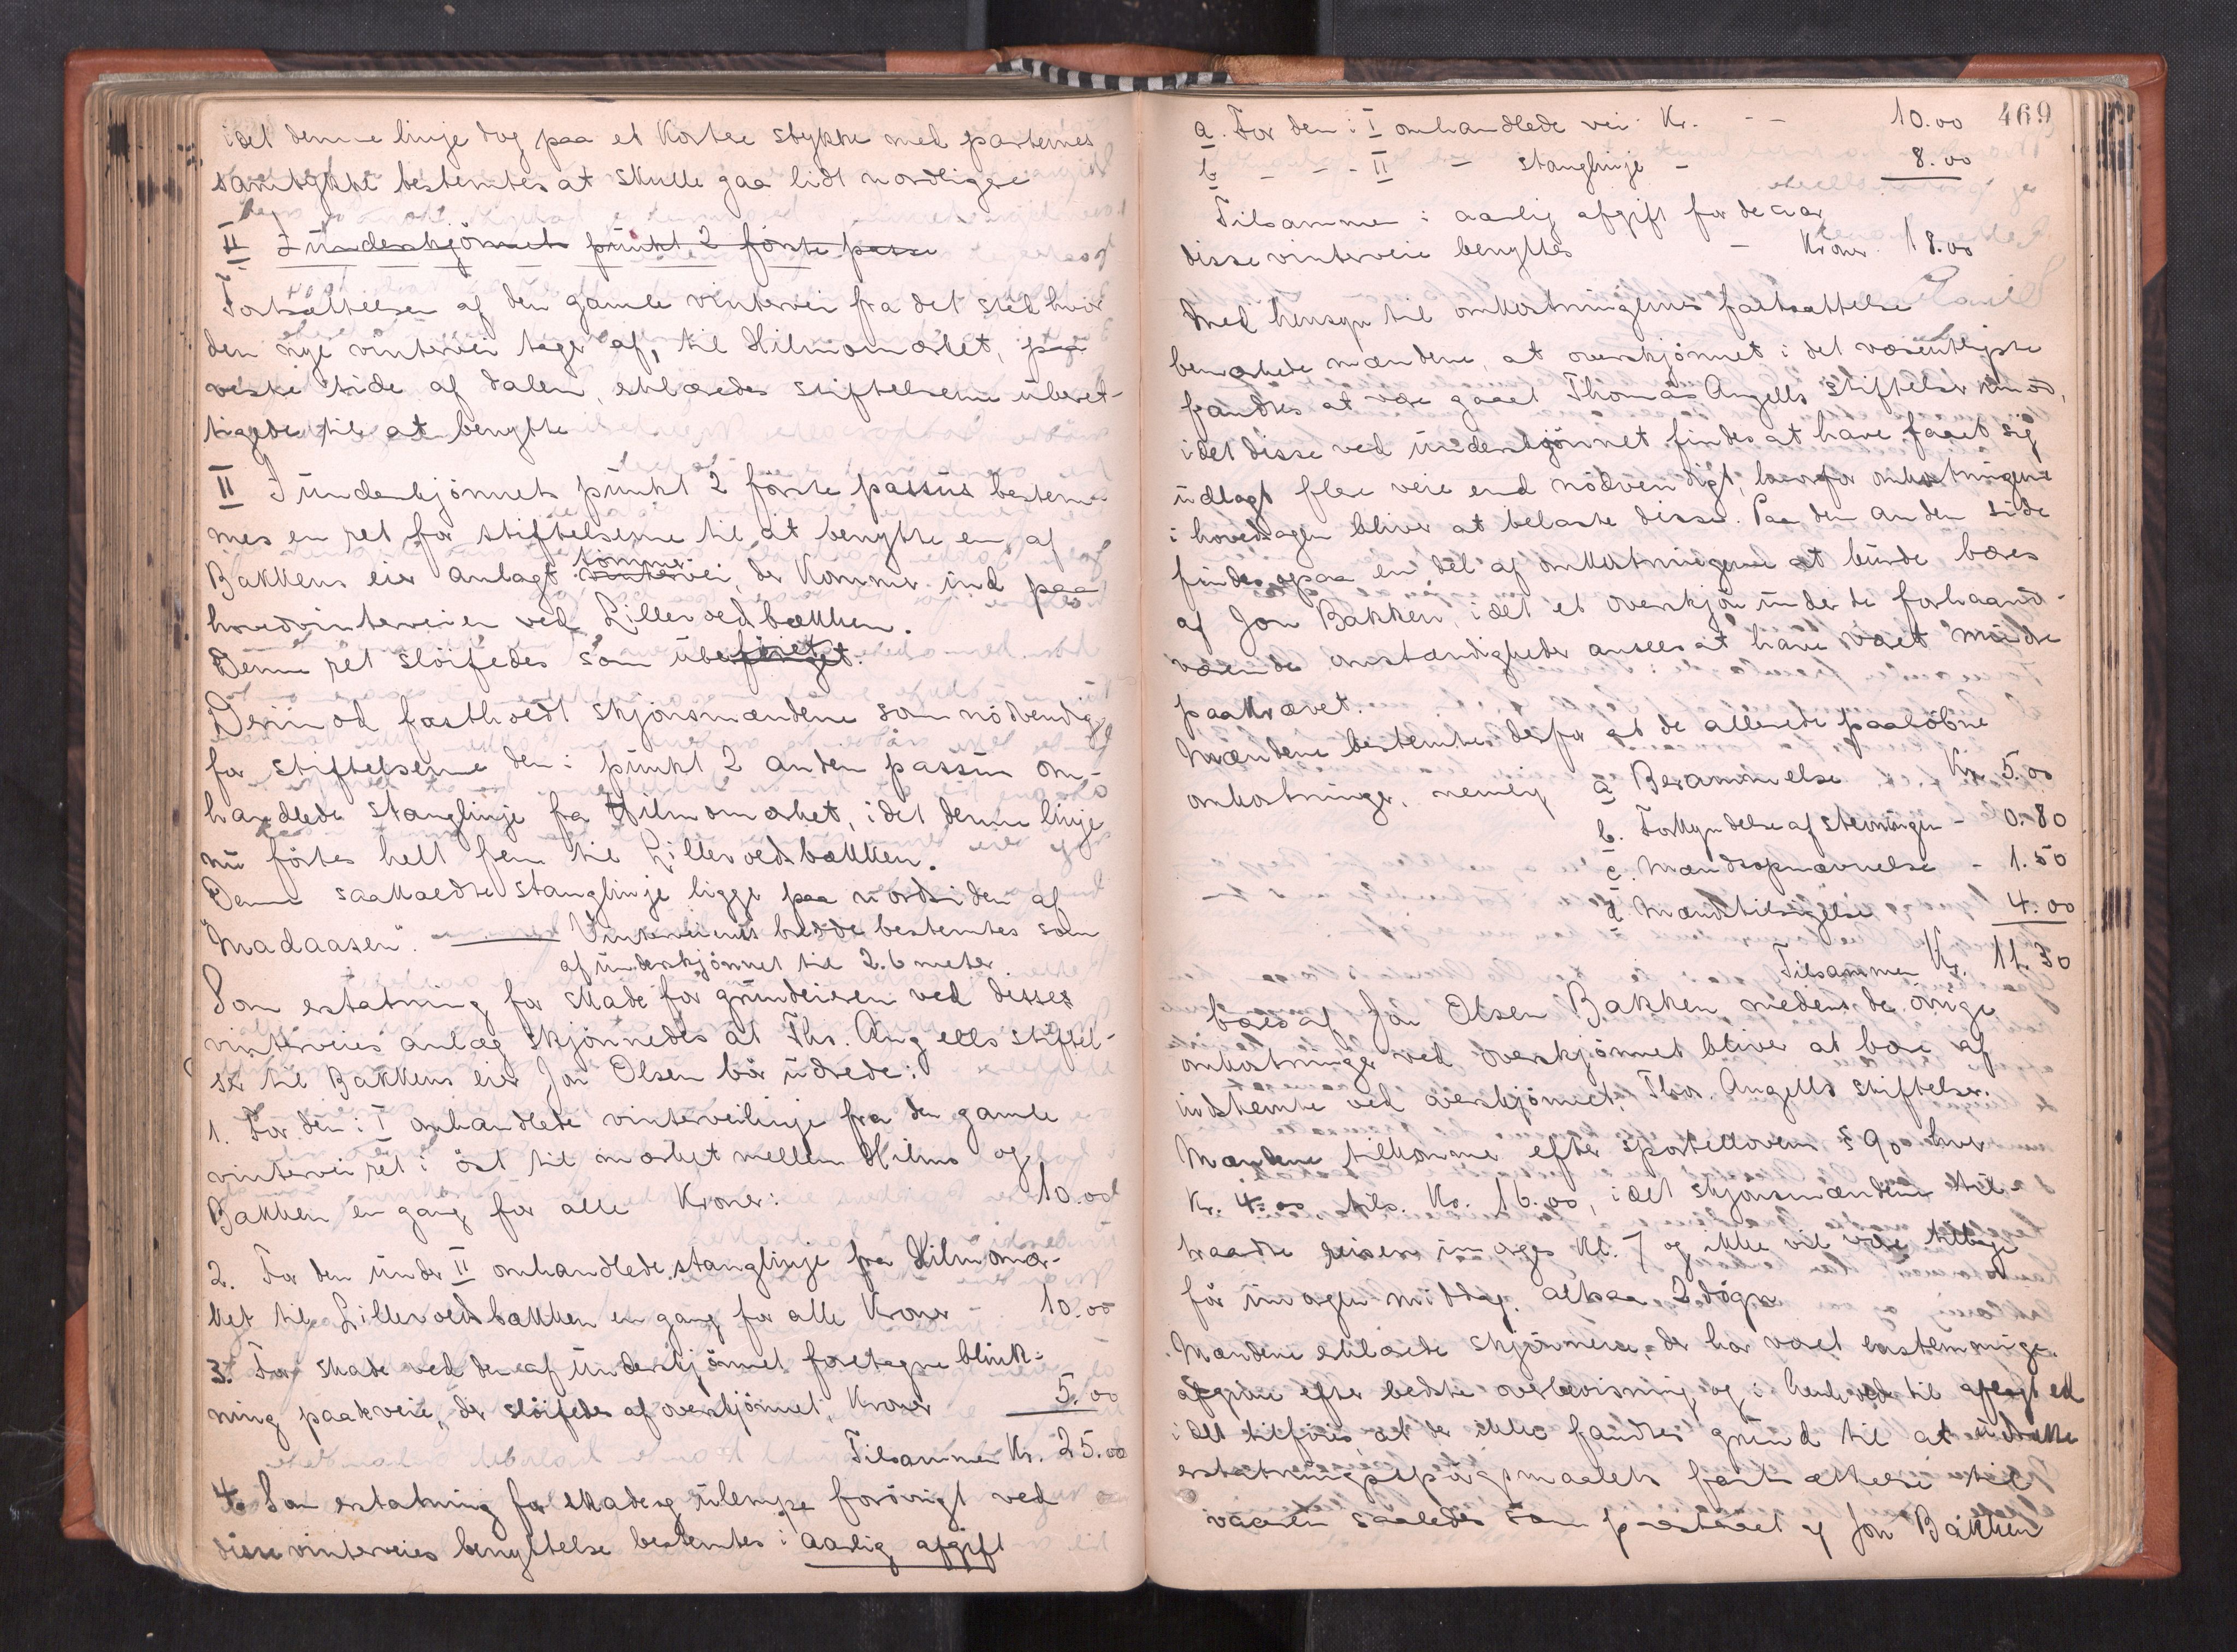 idet denne linje dog paa et kortere stykke med parternes
samtykke bestemtes at skulle gaa lidt nordligere
II I underskjönnets punkt 2 förste passus
Fortsættelsen af den gamle vintervei fra det sted hvor
den nye vintervei tager af, til Hilmomærket, paa
vestre side af dalen, erklæredes stiftelserne uberet-
tigede til at benytte
II I underskjönnets punkt 2 förste passus bestem-
mes en ret for stiftelserne til at benytte en af
Bakkens eier anlagt tömmervei, der kommer ind paa
hovedvinterveien ved Lillervedbækken.
Denne ret slöifedes som ubeföiet.
Derimod fastholdt skjönsmændene som nödvendig
for stiftelserne den i punkt 2 anden passus om-
handlede stanglinje fra Hilmomærket, idet denne linje
nu förtes helt frem til Lillervedbækken.
Denne saakaldte stanglinje ligger paa nordsiden af
"Madaasen". Vinterveienes bredde bestemtes som
af underskjönnet til 2.6 meter.
Som erstatning for skade for grundeieren ved disses
vinterveies anlæg skjönnedes at Ths. Angells stiftel-
ser til Bakkens eier Jon Olsen bör udrede:
1. For den i I omhandlede vinterveilinje fra den gamle
vintervei ret i öst til mærket mellem Hilmo og
Bakken en gang for alle Kroner: 10.00
2. For den under II omhandlede stanglinje fra Hilmomær-
ket til Lillervedbækken en gang for alle Kroner - 10.00
3. For skade ved den af underskjönnet foretagne blink-
ning paa veie, der slöifedes af overskjönnet, Kroner 5.00
Tilsammen Kr. 25.00
4. Som erstatning for skade og ulempe forövrigt ved
disse vinterveies benyttelse bestemtes i aarlig afgift
469
a. For den i I omhandlede vei Kr. - - 10.00
b - - - II - stanglinje - 8.00
Tilsammen i aarlig afgift for de aar
disse vinterveie benyttes - Kroner 18.00
Med hensyn til omkostningernes fastsættelse
bemærkede mændene, at overskjönnet i det væsentligste
fandtes at være gaaet Thomas Angells Stiftelser imod,
idet disse ved underskjönnet findes at have faaet sig
udlagt flere veie end nödvendigt, hvorfor omkostningerne
i hovedsagen bliver at belaste disse. Paa den anden side
findes ogsaa en del af omkostningerne at burde bæres
af Jon Bakken, idet et overskjön under de forhaand-
værende omstændigheder ansees at have været mindre
paakrævet.
Mændene bestemte derfor at de allerede paalöbne
omkostninger, nemlig a Berammelse Kr. 5.00
b. Forkyndelse af stevningen - 0.80
c. Mændsopnævnelse - 1.50
d Mændstilsigelse 4.00
Tilsammen Kr. 11.30
bæres af Jon Olsen Bakken medens de övrige
omkostninger ved overskjönnet bliver at bære af
indstevnte ved overskjönnet, Thos. Angells stiftelser.
Mændene tilkommer efter sportelloven § 90 hver
Kr. 4.00 tils. Kr. 16.00, idet skjönsmændene til-
traadte reisen imorges Kl. 7 og ikke vil være tilbage
för imorgen middag. altsaa 2 dögn
Mændene erklærede skjönnene, der har været enstemmige
afgivne efter bedste overbevisning og i henhold til aflagt ed
idet tilföies, at der ikke fandtes grund til at udsætte
erstatningsspörgsmaalets fastsættelse til
vaaren saaledes som paastaaet af Jon Bakken